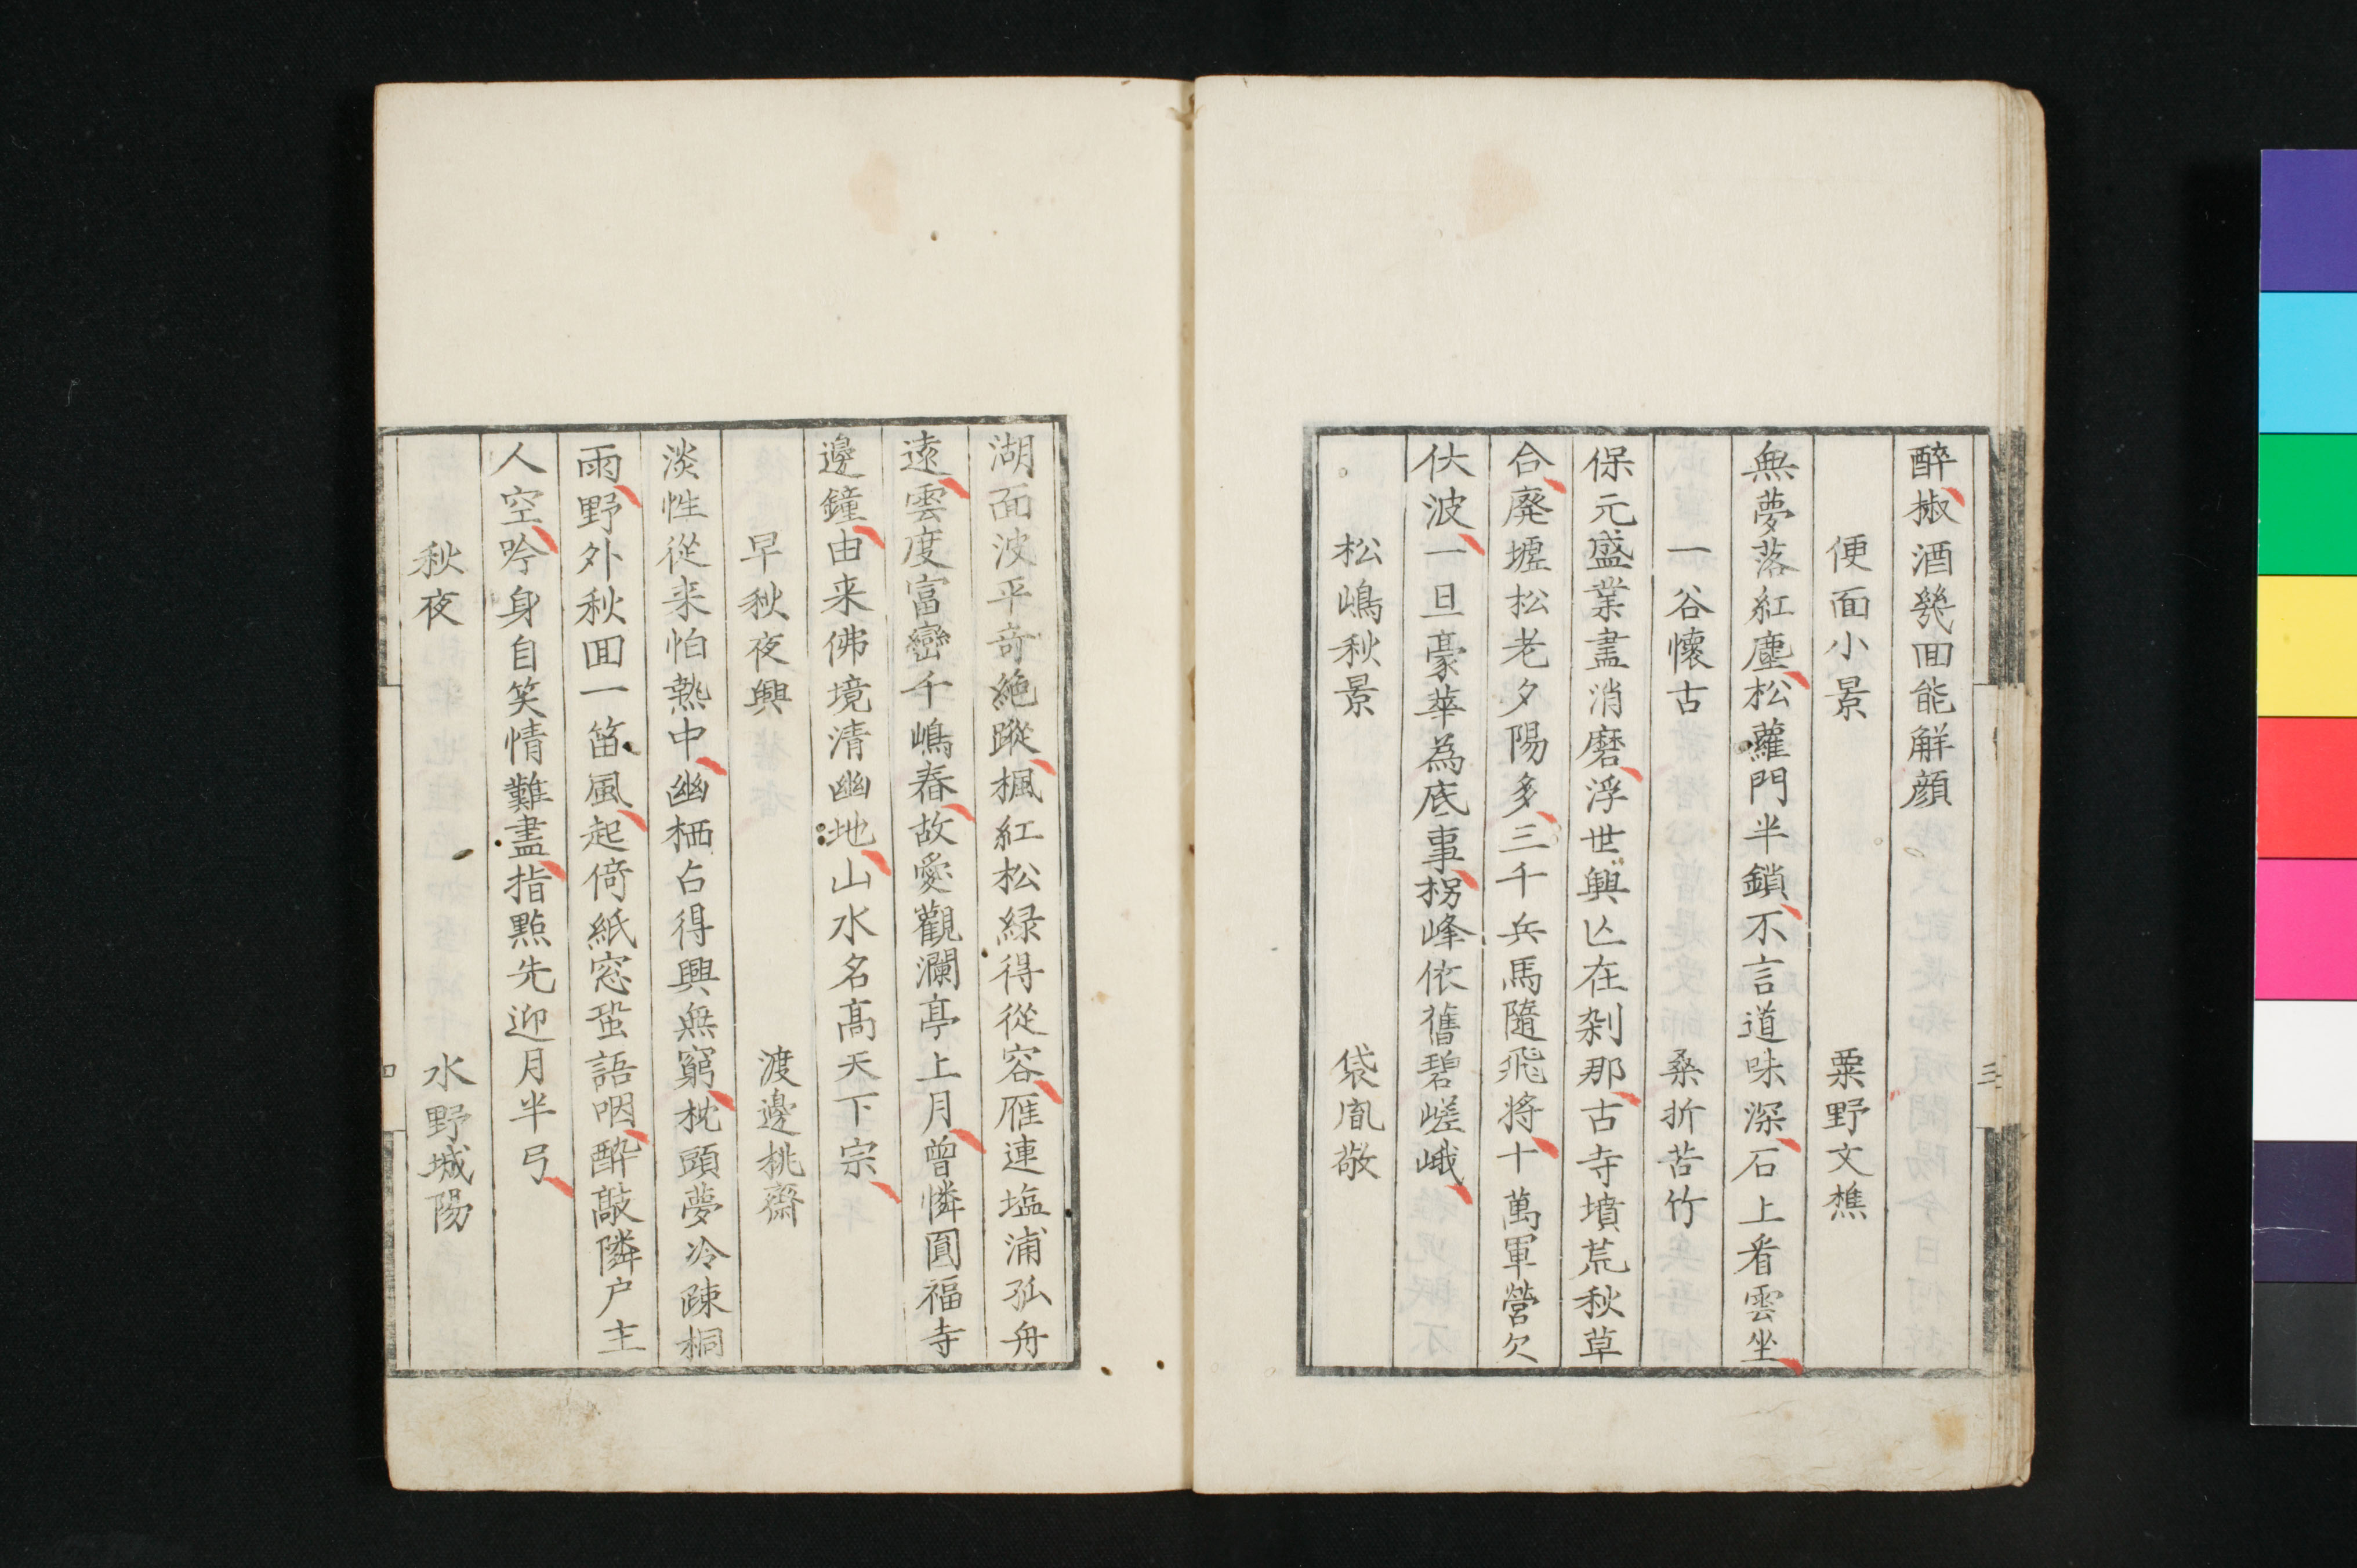 醉椒酒幾回能解顔
便面小景　粟野文樵
無夢落紅塵松蘿門半鎖不言道味深石上看雲坐
一谷懷古　桑折苔竹
保元盛業盡消磨浮世興亾在刹那古寺墳荒秋草
合廢墟松老夕陽多三千兵馬隨飛將十萬軍營欠
伏波一旦豪華為底事拐峰依舊碧嵯峨
松嶋秋景　袋胤敬
三
湖面波平奇絶蹤楓紅松緑得從容雁連塩浦孤舟
遠雲度富巒千嶋舂故愛觀瀾亭上月曾憐圓福寺
邊鐘由来佛境清幽地山水名髙天下宗
早秋夜興　渡邊桃齋
淡性從来怕熱中幽栖占得興無窮枕頭夢冷疎桐
雨野外秋回一笛風起倚紙窓蛩語咽酔敲隣户主
人空吟身自笑情難盡指點先迎月半弓
秋夜　水野城陽
四